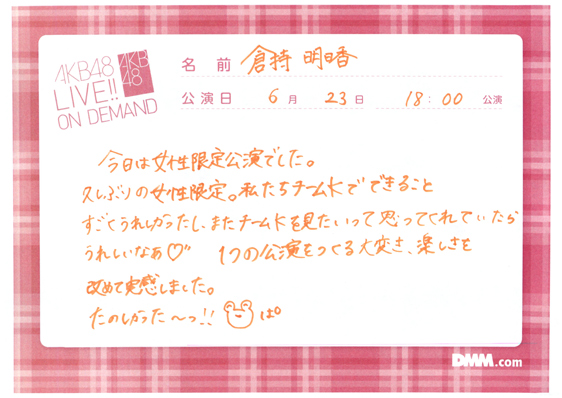 AKB48
LIVE!!
ON DEMAND
AKB
48
名前 倉持 明日香
公演日 6月 23日 18:00 公演
今日は女性限定公演でした。
久しぶりの女性限定。私たちチームKでできること
すごくうれしかったし、またチームKを見たいって思ってくれていたら
うれしいなあ♡"  1つの公演をつくる大変さ、楽しさを
改めて実感しました。
たのしかった〜っ!! ぱ。
DMM.com